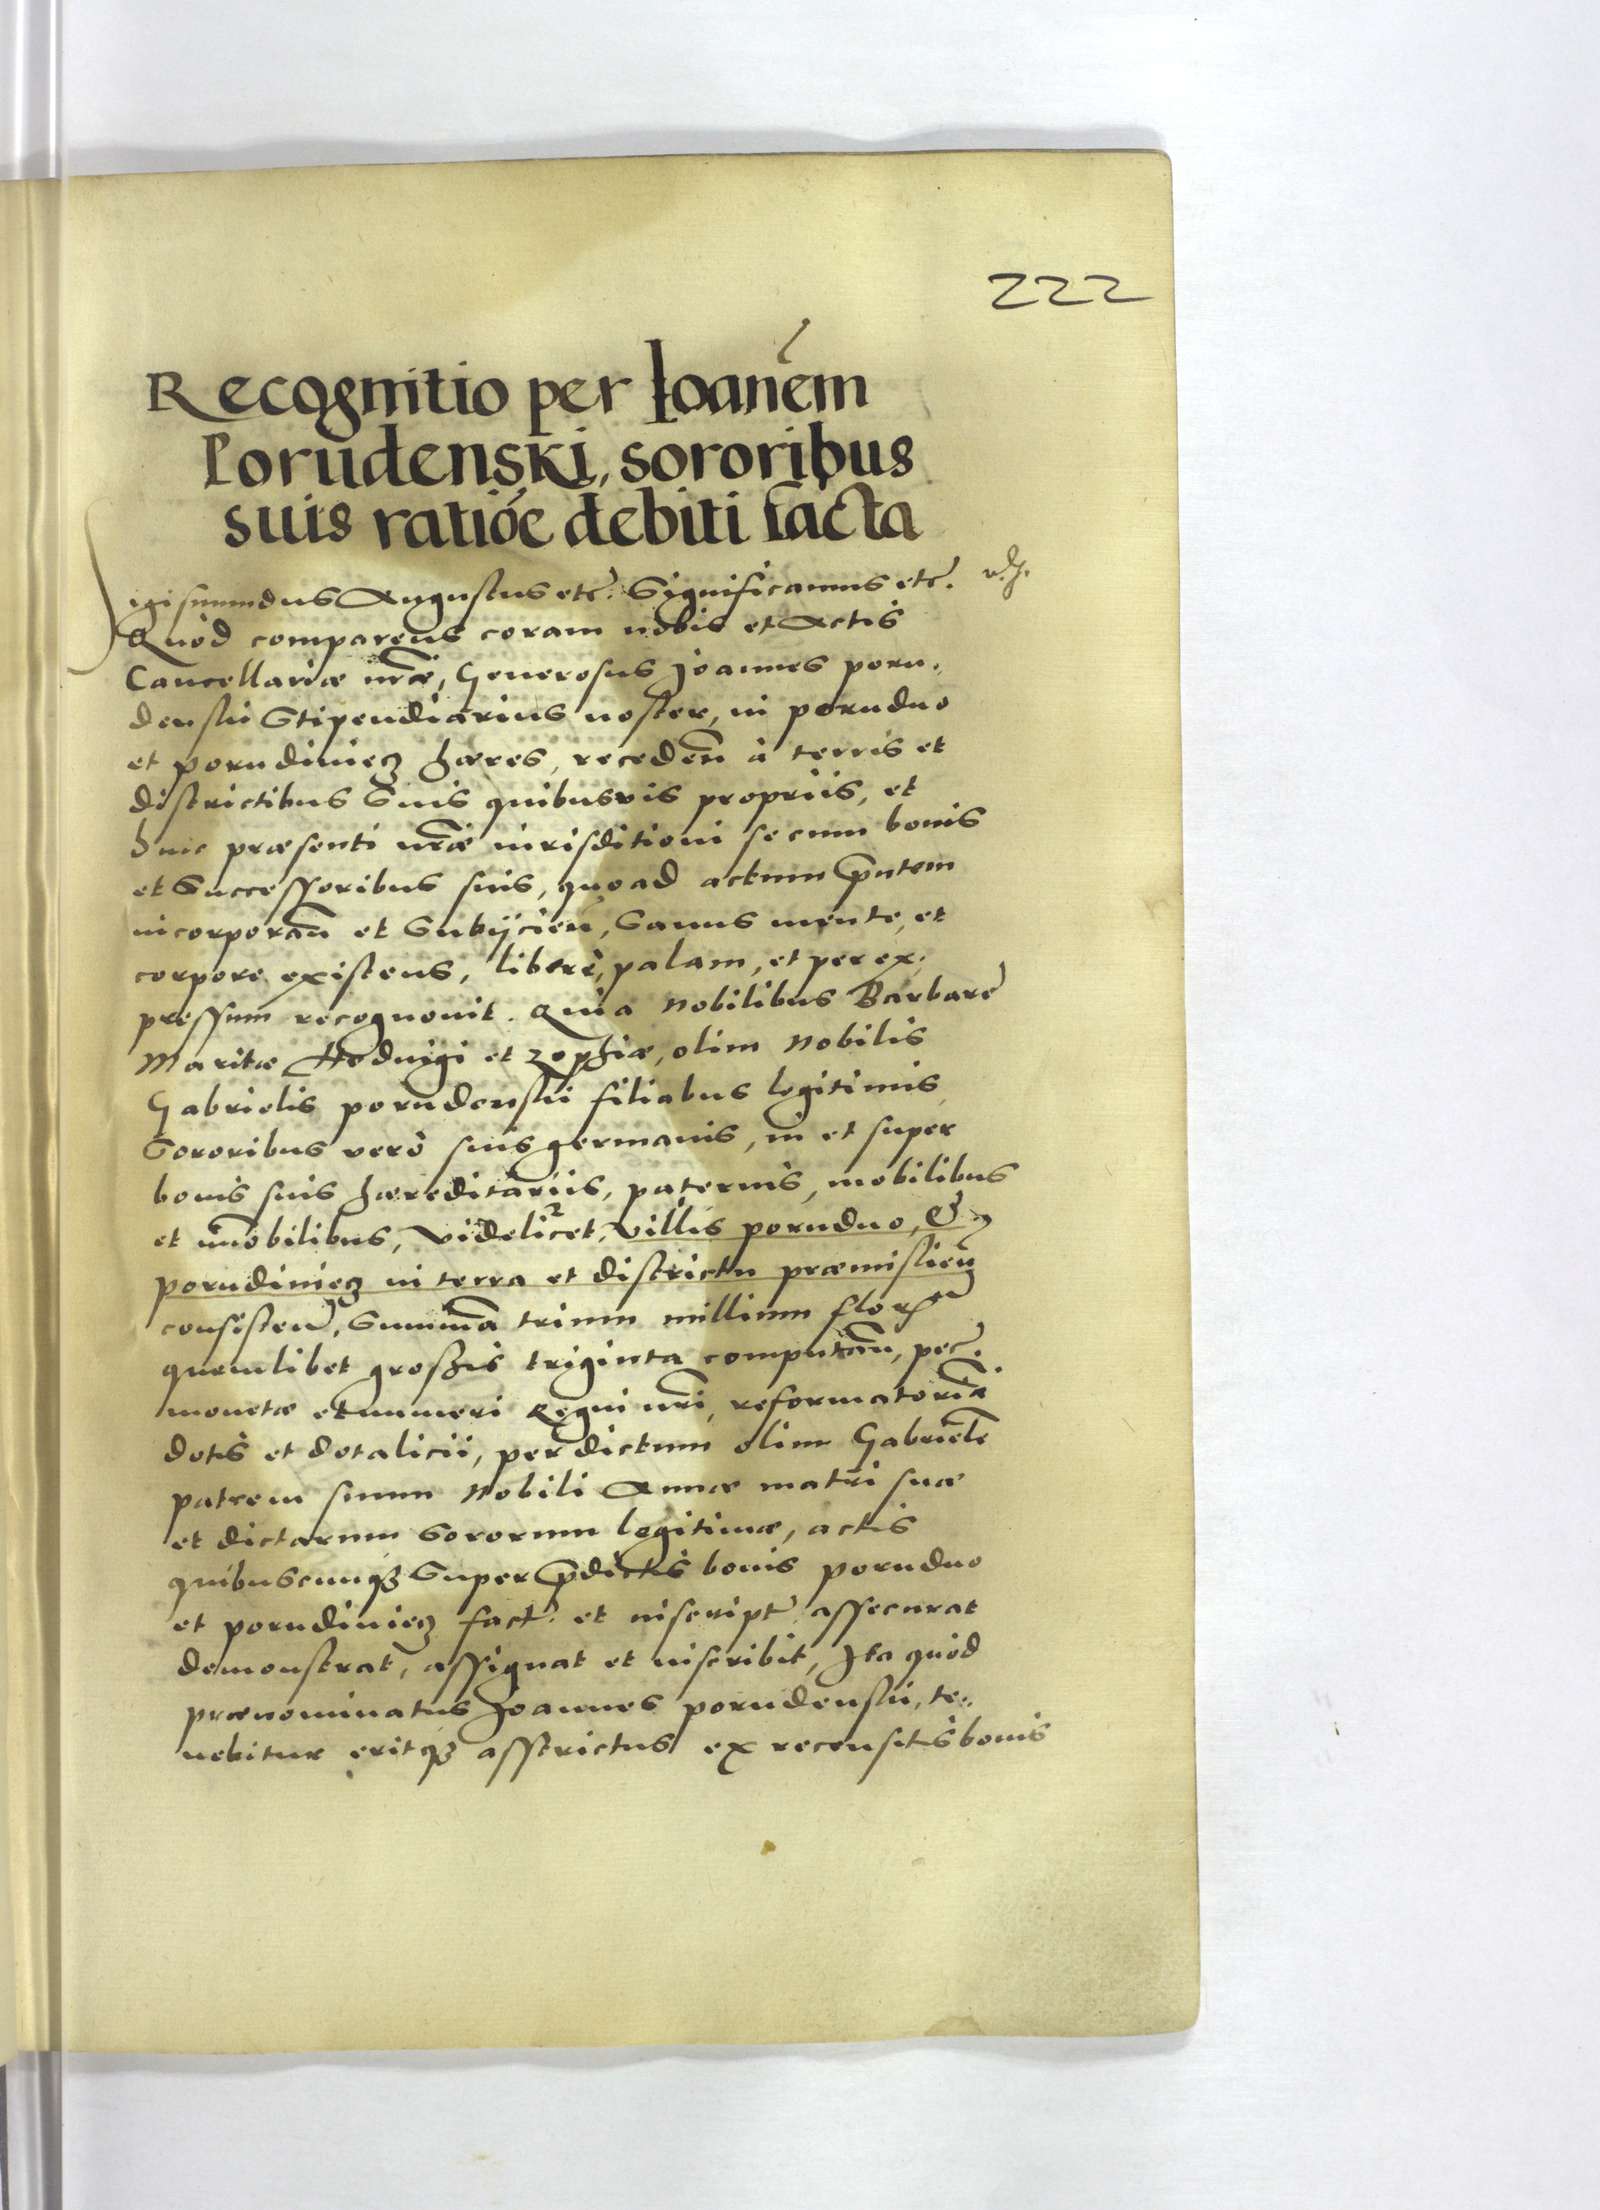 222
Recognitio per Ioanēm
Porudenski, sororibus
suis ratiōe debiti facta
Sigismundus Augustus etc. Significamus etc.
Quòd comparens coram nobis et Actis
Cancellariæ nr̄æ, Generosus Joannes poru-
denskii Stipendiarius noster, in poruduo
et porudiniecz hæres, recedeñ à terris et
districtibus Suis quibusvis propriis, et
huic præsenti nr̄æ iurisditioni se cum bonis
et Successoribus suis, quo ad actum p̄ntem
incorporañ et Subijcieñ, Sanus mente, et
corpore existens, liberè, palam, et per ex-
pressum recognovit. Quia Nobilibus Barbare
Maritæ Hedvigi et Zophiæ, olim Nobilis
Gabrielis porudenskii filiabus legitimis
Sororibus verò suis germanis, in et super
bonis suis hæreditariis, paternis, mobilibus
et im̄obilibus, videlicet, villis poruduo, &
porudiniecz in terra et districtu præmislieñ
consisteñ, Sum̄ma trium millium flor
quemlibet groszis triginta computañ, pec.
monetæ et numeri Regni nr̄i, reformatoria
dotis et dotalicii, per dictum olim Gabriele
patrem suum Nobili Annæ matri suæ
et dictarum Sororum legitimæ, actis
quibuscunqȝ Super p̄dictis bonis poruduo
et porudiniecz fact. et inscript. assecurat
demonstrat, assignat et inscribit, Ita quòd
prænominatus Joannes porudenskii, te-
nebitur eritqȝ asstrictus ex recensitis bonis